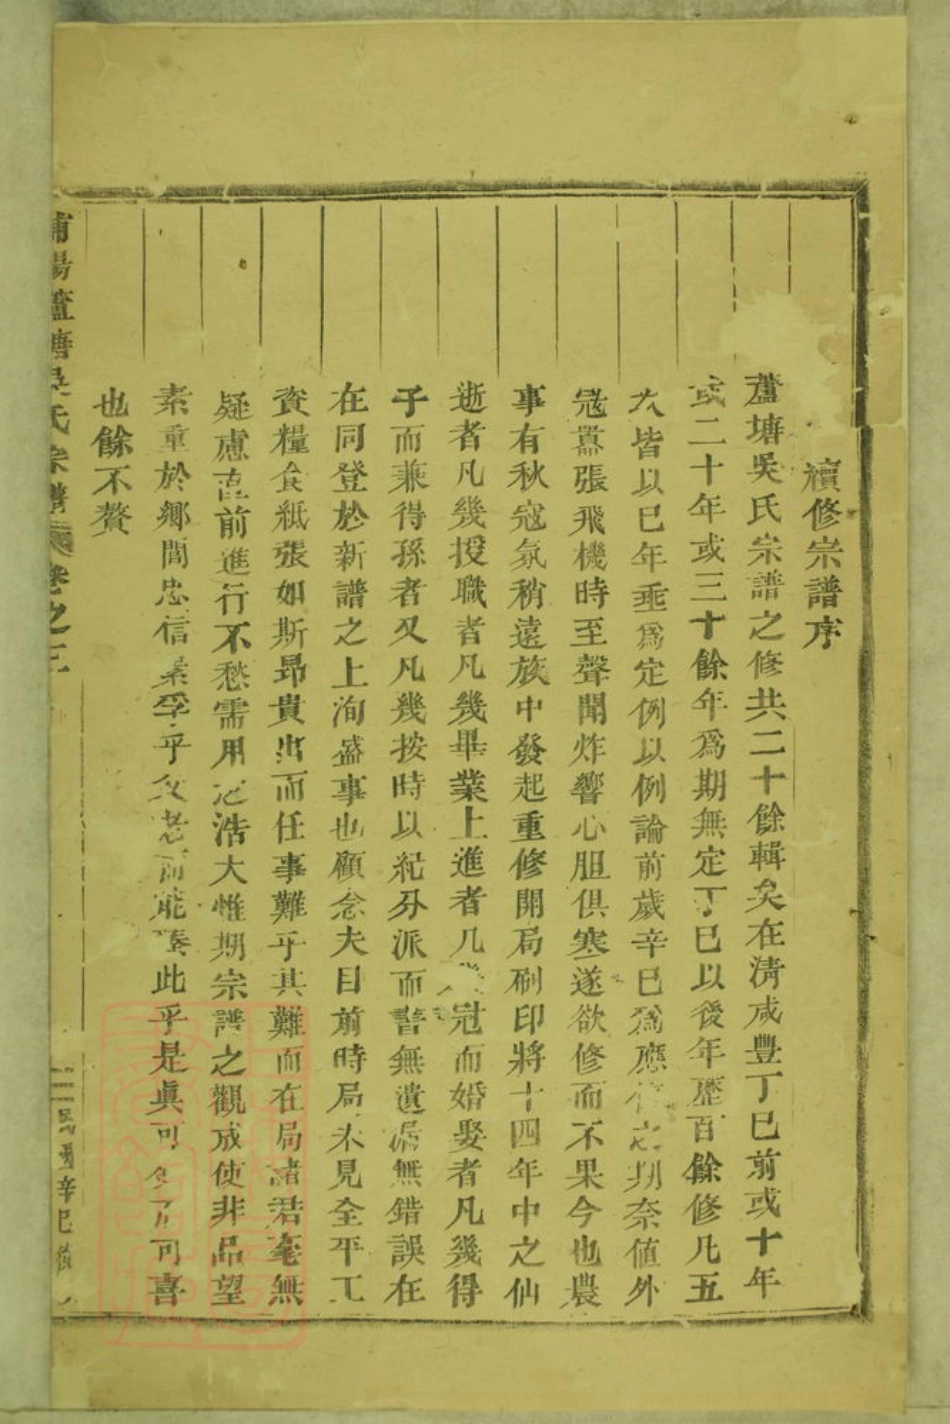 續修宗譜序
蘆塘吳氏宗譜之修共二十餘輯矣在淸咸豐丁巳前或十年
或二十年或三十餘年爲期無定丁巳以後年歷百餘修凡五
次皆以巳年乖爲定例以例論前歲辛巳爲應修之期奈値外
寇囂張飛機時至聲聞炸響心胆俱寒遂欲修而不果今也農
事有秋寇氛稍遠族中發起重修開局刷印將十四年中之仙
逝者凡幾授職者凡幾畢業上進者凡幾冠而婚娶者凡幾得
子而兼得孫者又凡幾按時以紀分派而書無遺漏無錯誤在
在同登於新譜之上洵盛事也顧念夫目前時局未見全平工
資糧食紙張如斯昂貴出而任事難乎其難而在局諸君毫無
疑慮直前進行不愁需用之浩大惟期宗譜之觀成使非品望
素重於鄉閭忠信素孚乎父老而能臻此乎是眞可 可喜
也餘不贅
浦陽蘆塘吳氏宗譜 卷之三
民國辛巳